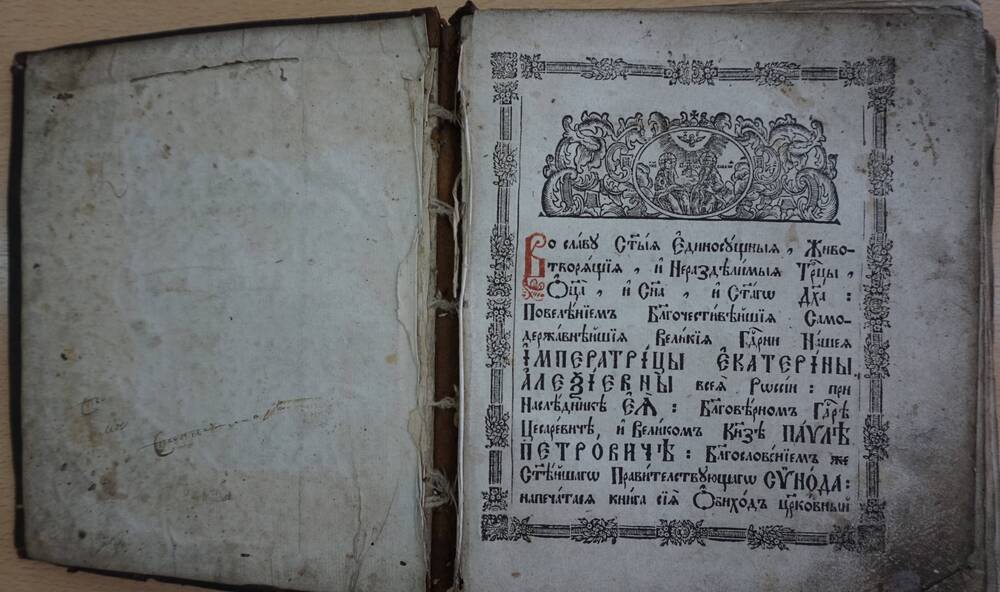 Во сла́ву Ст҃ы́ѧ Є҆диносꙋ́щныѧ, Живо-
творѧ́щїѧ, и҆ Нераздѣли́мыѧ Трⷪ҇цы,
Ѻ҆ц҃а̀, и҆ Сн҃а, и҆ Ст҃а́гѡ Дх҃а:
Повелѣ́нїемъ Бл҃гочести́вѣйшїѧ Само-
держа́внѣйшїѧ Вели́кїѧ Гдⷭ҇рни На́шеѧ
І҆МПЕРАТРІ́ЦЫ Є҆КАТЕРІ́НЫ
А҆ЛЕѮІ́ЕВНЫ всеѧ̀ Рѡссі́и: при
Наслѣ́дникѣ Є҆Ѧ̀: Бл҃говѣ́рномъ Гдⷭ҇рѣ
Цеса́ревичѣ, и҆ Вели́комъ Кнѧ҃зѣ ПА́ѴЛѢ
ПЕТРО́ВИЧѢ: Бл҃гослове́нїемъ же
Ст҃ѣ́йшагѡ Прави́телствꙋющагѡ СѴНО́ДА:
напеча́тасѧ кни́га сїѧ̀ Ѻ҆бихо́дъ цр҃ко́вный